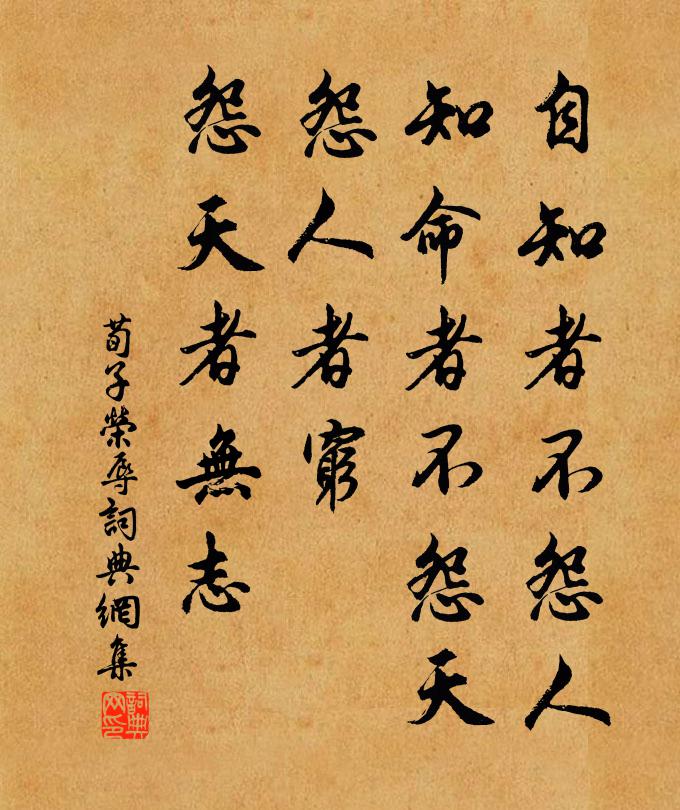 自知者不怨人
知命者不怨天
怨人者窮
怨天者無志
荀子榮辱詞典網集
詞典
网印